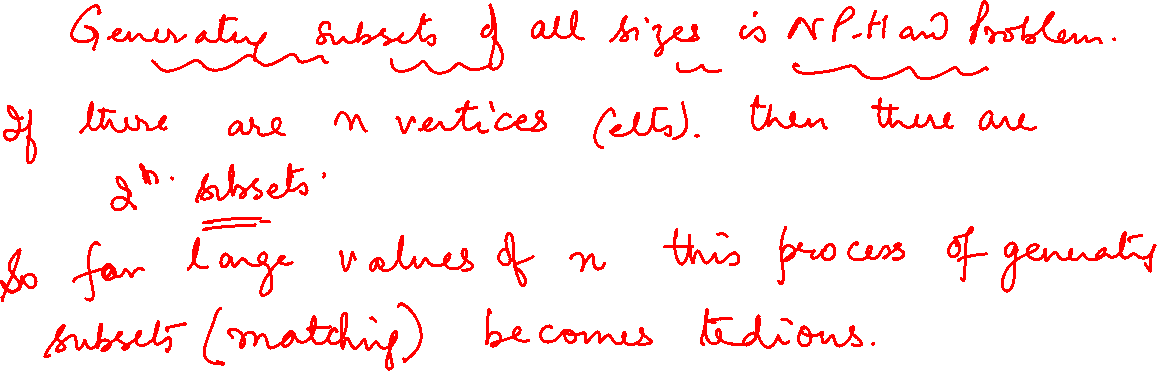 Generating subsets of all sizes is NP-Hard Problem.
If there are n vertices (elts). then there are
2^n. subsets.
So for large values of n this process of generating
subsets (matching) becomes tedious.